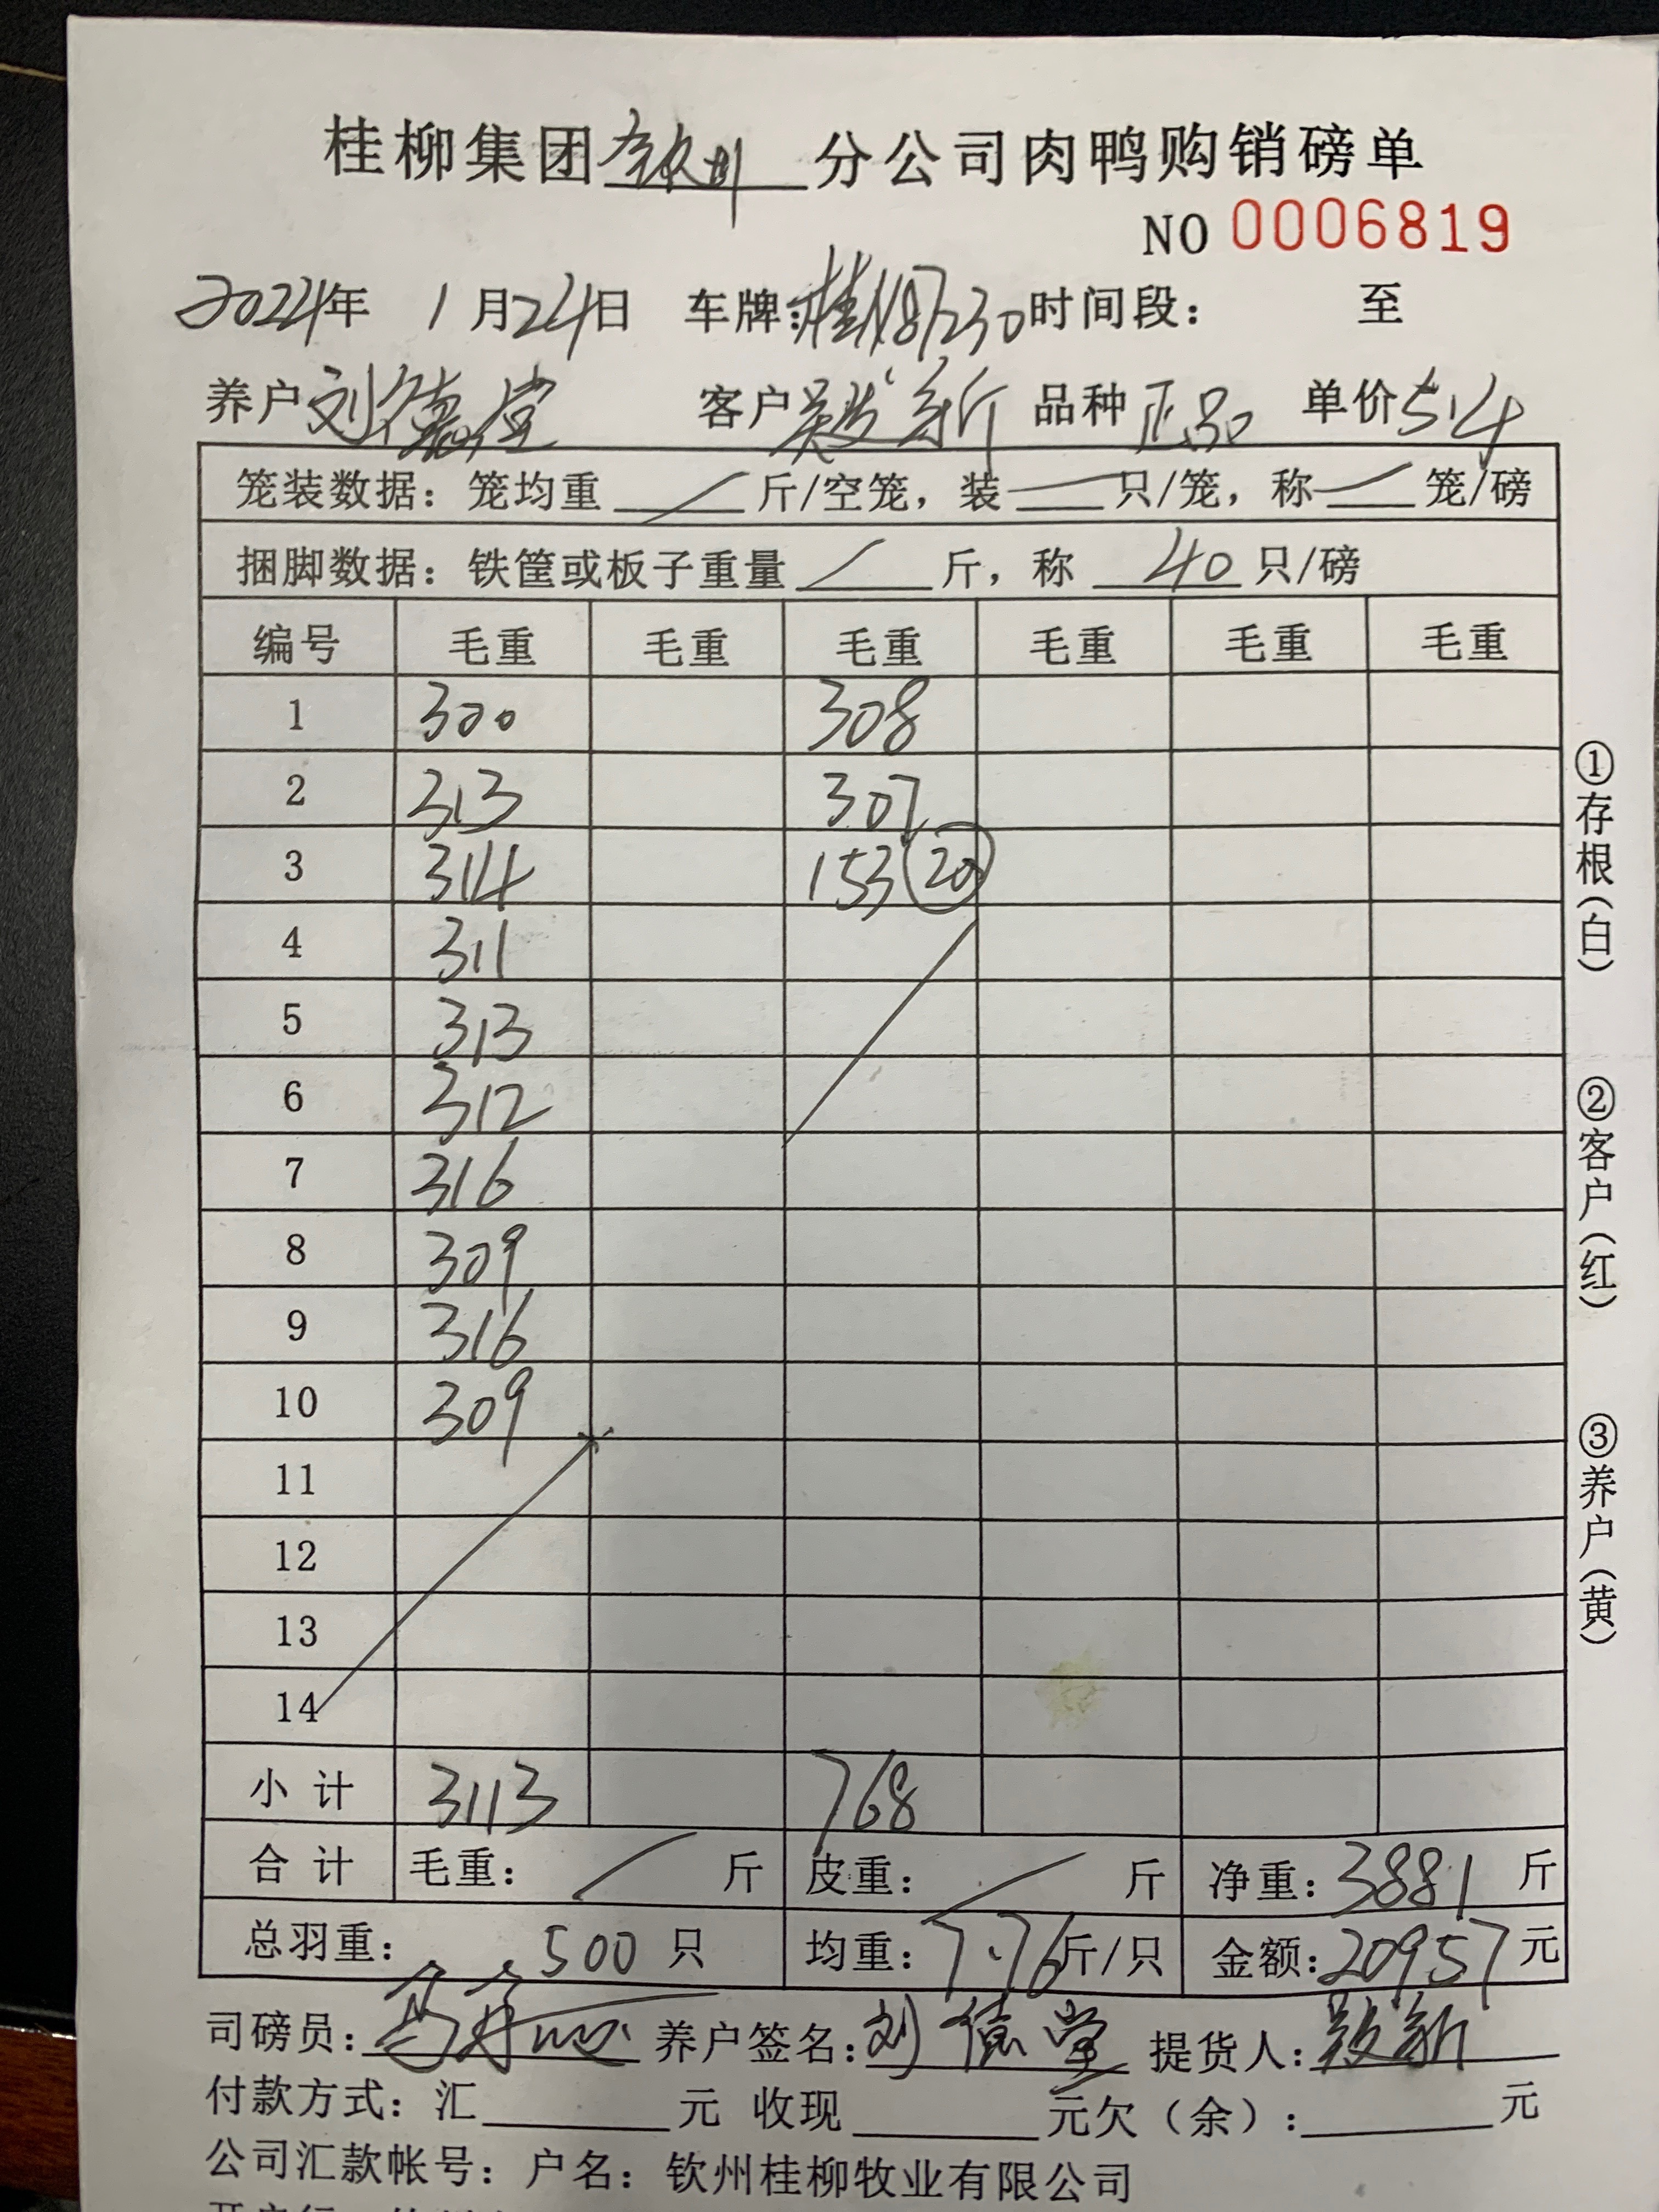 桂柳集团钦州分公司肉鸭购销磅单
NO 0006819
2024年 1月24日 车牌:桂 时间段: 至
养户 刘德堂 客户 新 品种 正品 单价 5.4
笼装数据: 笼均重 / 斤/空笼, 装 — 只/笼, 称 — 笼/磅
捆脚数据: 铁筐或板子重量 / 斤, 称 40 只/磅
编号 毛重 毛重 毛重 毛重 毛重 毛重
1 300 308
2 313 307
3 314 153 (20)
4 311
5 313
6 312
7 316
8 309
9 316
10 309
11
12
13
14
小计 3113 768
合计 毛重: / 斤 皮重: / 斤 净重: 3881 斤
总羽重: 500 只 均重: 7.76 斤/只 金额: 20957 元
司磅员: 养户签名: 刘德堂 提货人: 新
付款方式: 汇 元 收现 元欠(余): 元
公司汇款帐号: 户名: 钦州桂柳牧业有限公司
①存根(白)
②客户(红)
③养户(黄)